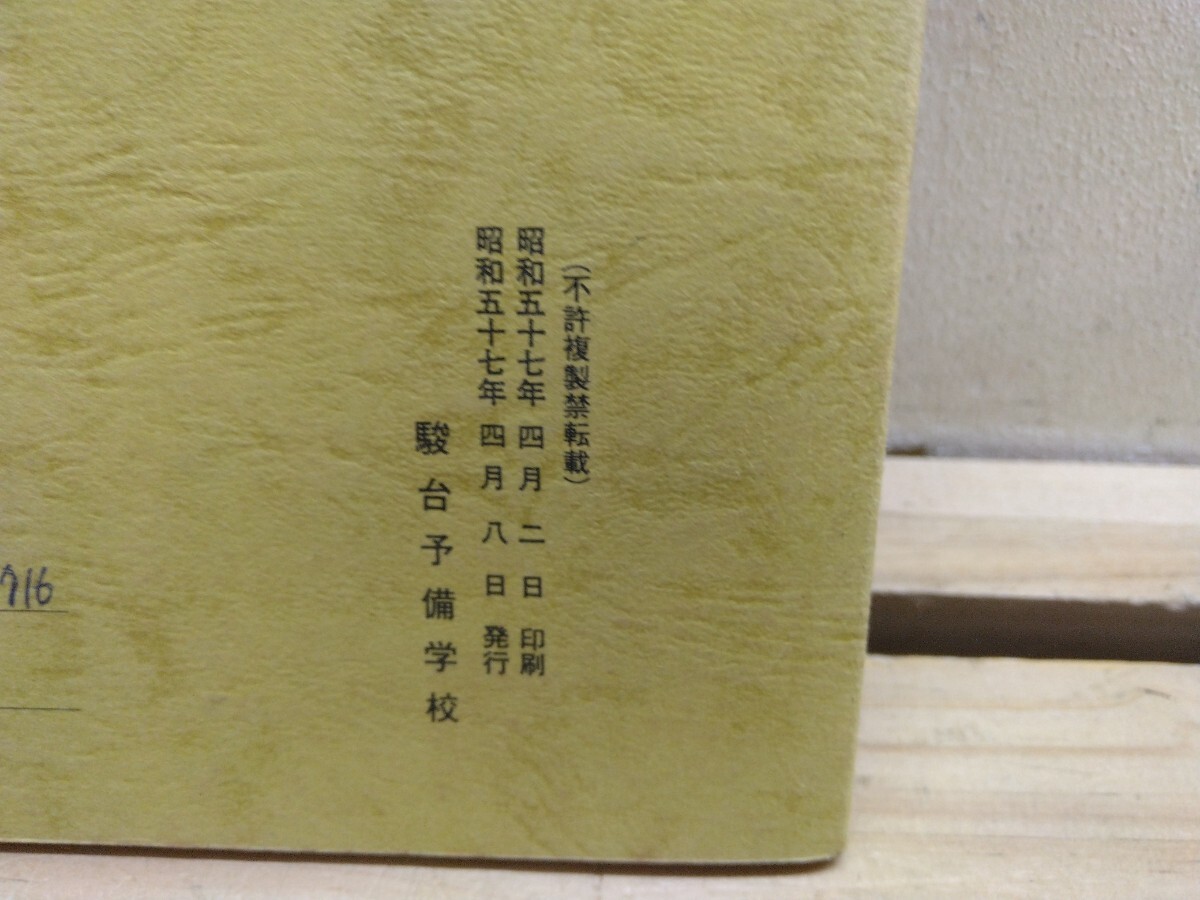 (不許複製禁転載)
昭和五十七年四月二日印刷
昭和五十七年四月八日発行
駿台予備学校
716